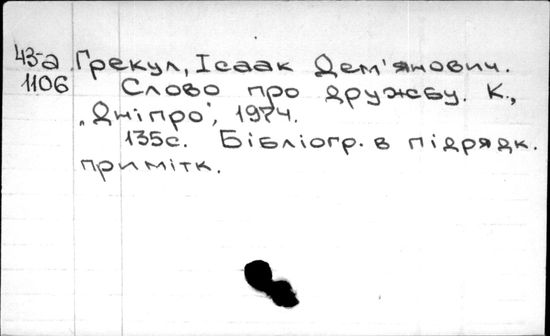 43-а Грекул, Ісаак Дем'янович.
1106 Слово про дружбу. К.,
„Дніпро", 1974.
135с. Бібліогр. в підрядк.
примітк.